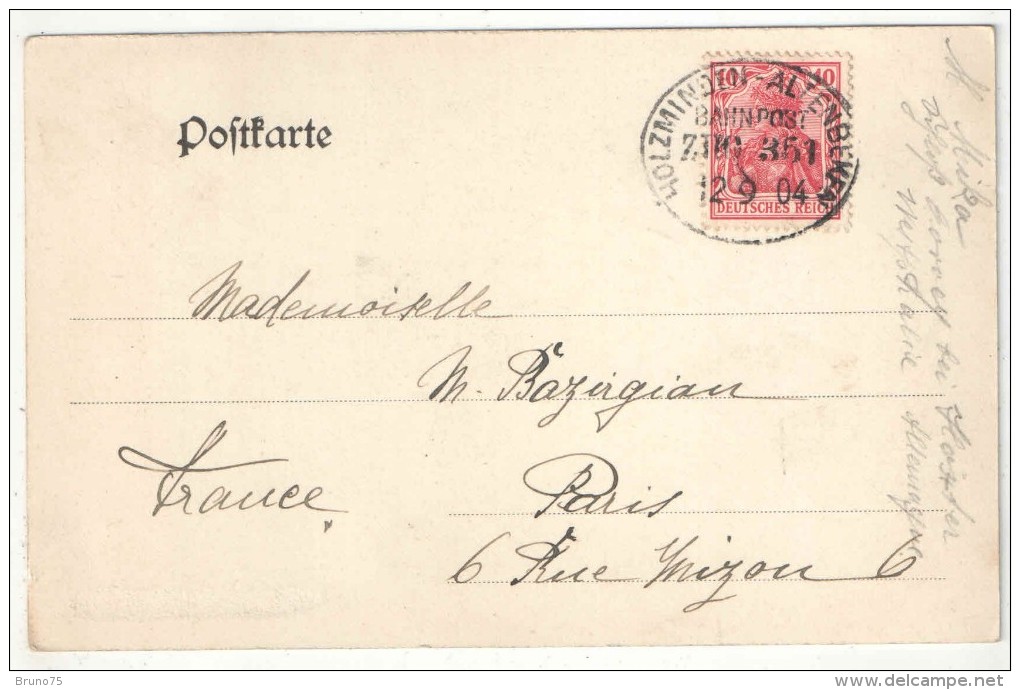 Postkarte
10 10
DEUTSCHES REICH
HOLZMINDEN-ALTENBEKEN
BAHNPOST
ZUG 351
12 9 04
Mademoiselle
M. Bazirgian
France
Paris
6 Rue Mizon 6
bei Höxter
Westfalie Allemagne
Bruno75
delcampe.net